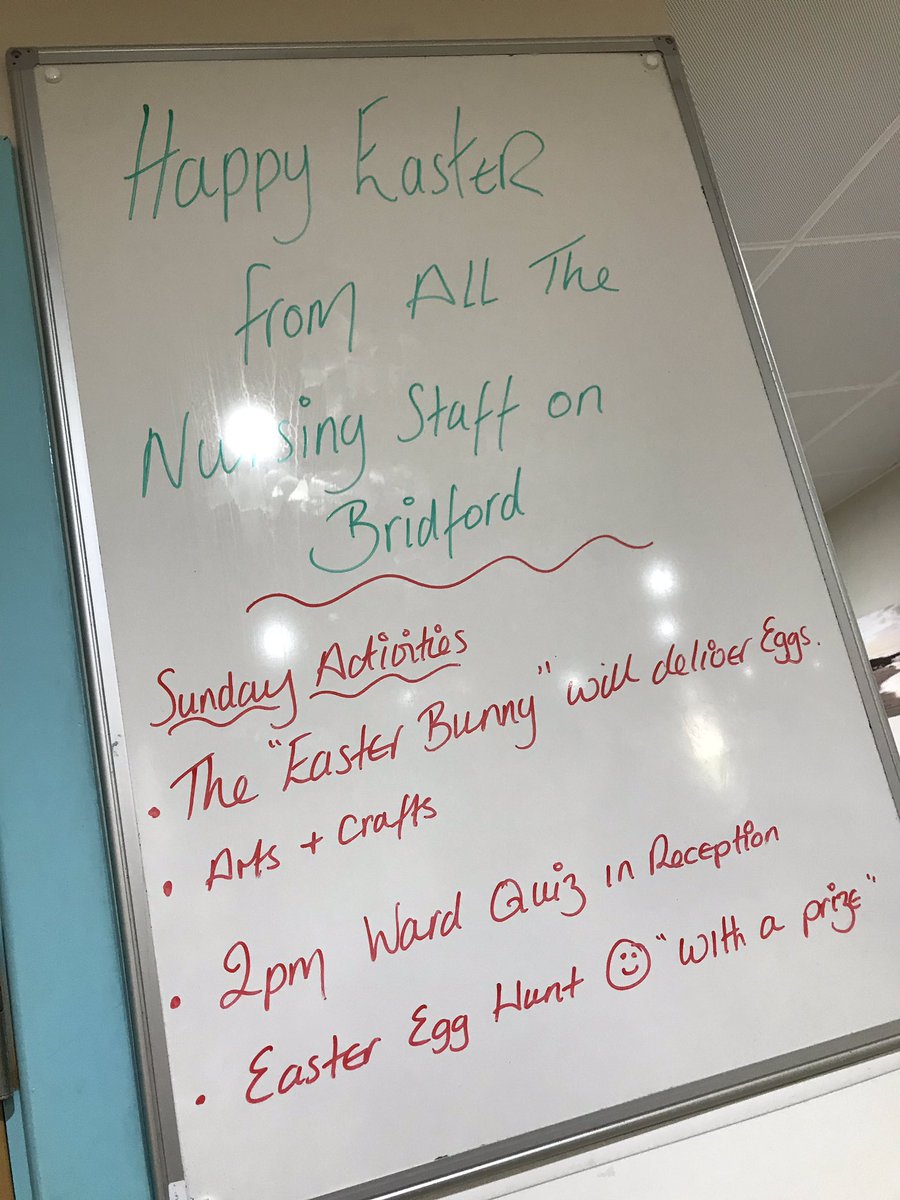 Happy Easter
from All The
Nursing Staff on
Bridford
Sunday Activities
• The "Easter Bunny" will deliver Eggs.
• Arts + Crafts
• 2pm Ward Quiz in Reception
• Easter Egg Hunt ☺ "with a prize"